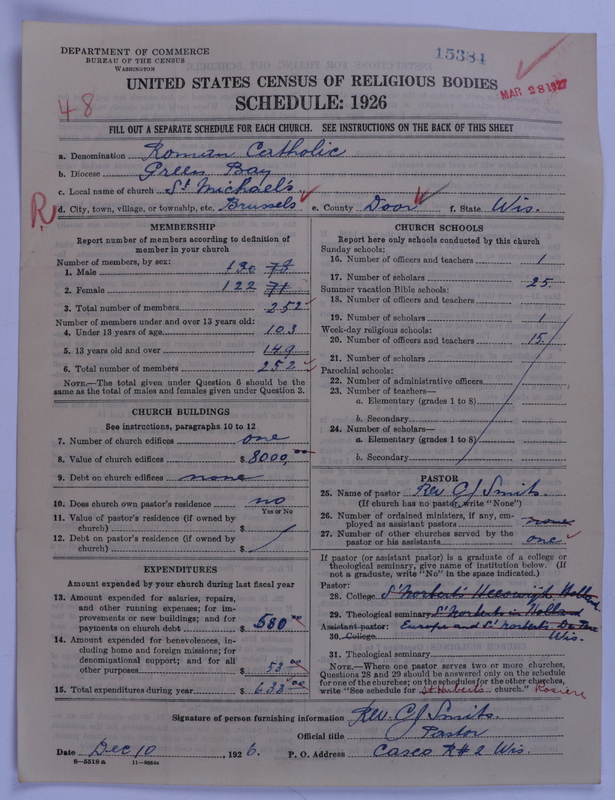 DEPARTMENT OF COMMERCE
BUREAU OF THE CENSUS
WASHINGTON
15384
MAR 28 1927
48
UNITED STATES CENSUS OF RELIGIOUS BODIES
SCHEDULE: 1926
FILL OUT A SEPARATE SCHEDULE FOR EACH CHURCH. SEE INSTRUCTIONS ON THE BACK OF THIS SHEET
a. Denomination Roman Catholic
b. Diocese Green Bay
c. Local name of church St Michaels
R
d. City, town, village, or township, etc. Brussels e. County Door f. State Wis.
MEMBERSHIP
Report number of members according to definition of member in your church
Number of members, by sex:
1. Male 130
2. Female 122 71
3. Total number of members 252
Number of members under and over 13 years old:
4. Under 13 years of age 103
5. 13 years old and over 149
6. Total number of members 252
NOTE.—The total given under Question 6 should be the same as the total of males and females given under Question 3.
CHURCH BUILDINGS
See instructions, paragraphs 10 to 12
7. Number of church edifices one
8. Value of church edifices $ 8000,00
9. Debt on church edifices none
10. Does church own pastor's residence no
Yes or No
11. Value of pastor's residence (if owned by church) $
12. Debt on pastor's residence (if owned by church) $
EXPENDITURES
Amount expended by your church during last fiscal year
13. Amount expended for salaries, repairs, and other running expenses; for improvements or new buildings; and for payments on church debt $ 580 00
14. Amount expended for benevolences, including home and foreign missions; for denominational support; and for all other purposes $ 53 00
15. Total expenditures during year $ 633 00
CHURCH SCHOOLS
Report here only schools conducted by this church
Sunday schools:
16. Number of officers and teachers 1
17. Number of scholars 25
Summer vacation Bible schools:
18. Number of officers and teachers
19. Number of scholars 1
Week-day religious schools:
20. Number of officers and teachers 15
21. Number of scholars
Parochial schools:
22. Number of administrative officers
23. Number of teachers—
a. Elementary (grades 1 to 8)
b. Secondary
24. Number of scholars—
a. Elementary (grades 1 to 8)
b. Secondary
PASTOR
25. Name of pastor Rev. CJ Smits.
(If church has no pastor, write "None")
26. Number of ordained ministers, if any, employed as assistant pastors none
27. Number of other churches served by the pastor or his assistants one
If pastor (or assistant pastor) is a graduate of a college or theological seminary, give name of institution below. (If not a graduate, write "No" in the space indicated.)
Pastor:
28. College St Norberts Heeswijk Holland
29. Theological seminary St Norberts in Holland
Assistant pastor: Europe and St Norberts De Pere
30. College Wis.
31. Theological seminary
NOTE.—Where one pastor serves two or more churches, Questions 28 and 29 should be answered only on the schedule for one of the churches; on the schedules for the other churches, write "See schedule for St. Huberts church." Rosiere
Signature of person furnishing information Rev. CJ Smits.
Official title Pastor
Date Dec 10 1926. P. O. Address Casco R#2 Wis.
8—5518 a 11—9554a